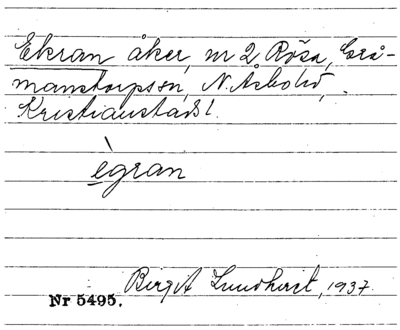 Ekran åker, nr 2 Röså, Grå-
manstorps sn, N. Åsbo hd,
Kristianstads l.
ègran
Birgit Lundqvist, 1937.
Nr 5495.